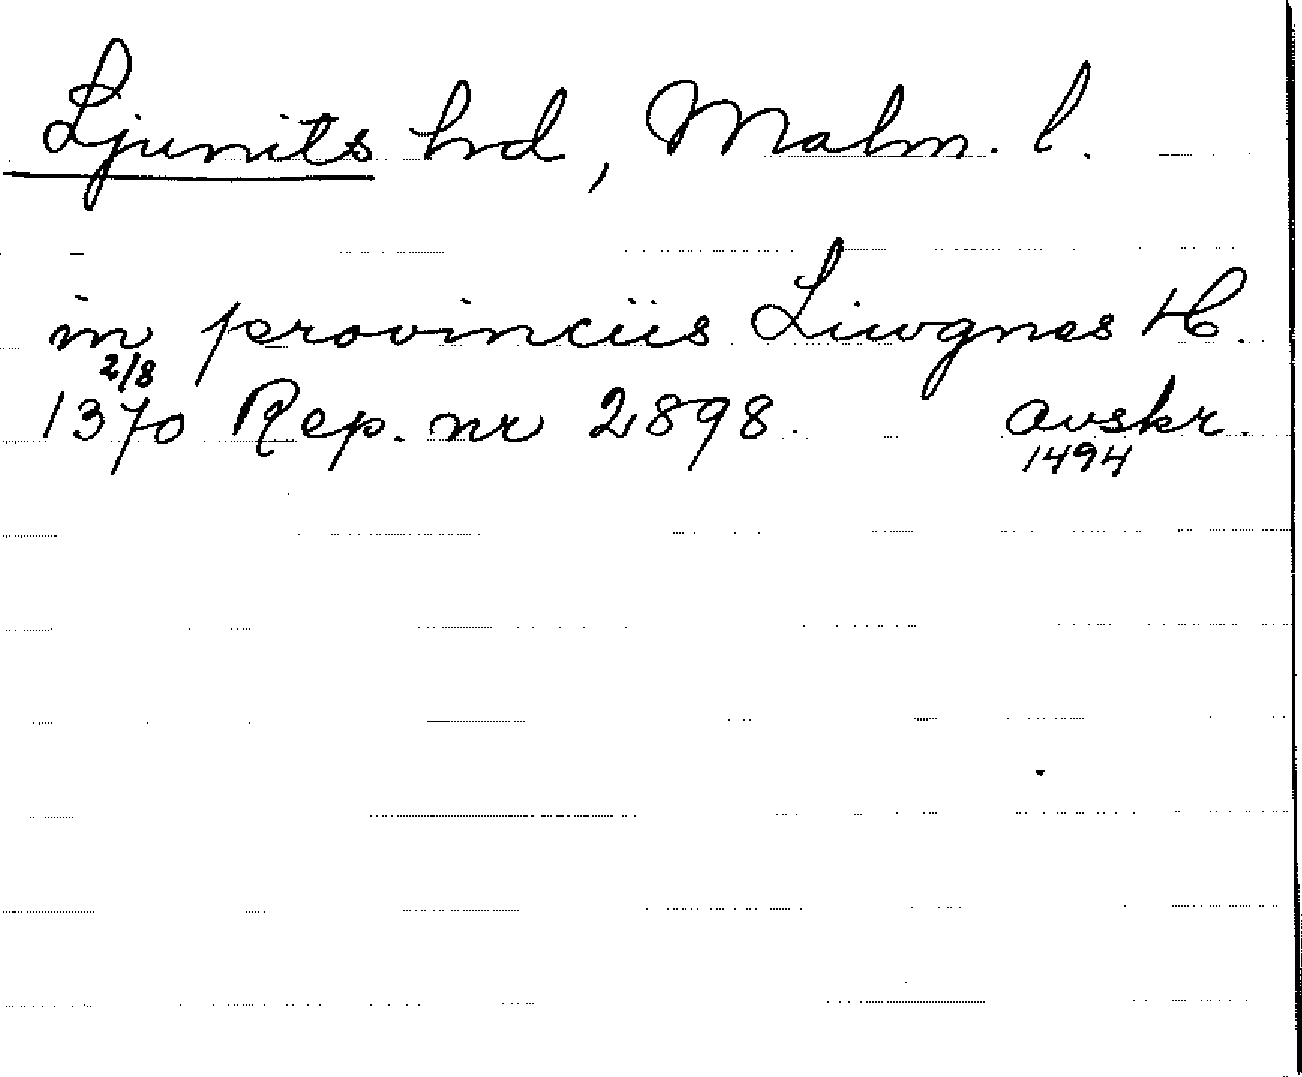 Ljunits hrd, Malm. l.
in provinciis Liwgnas H.
2/8
1370 Rep. nr 2898. avskr.
1494